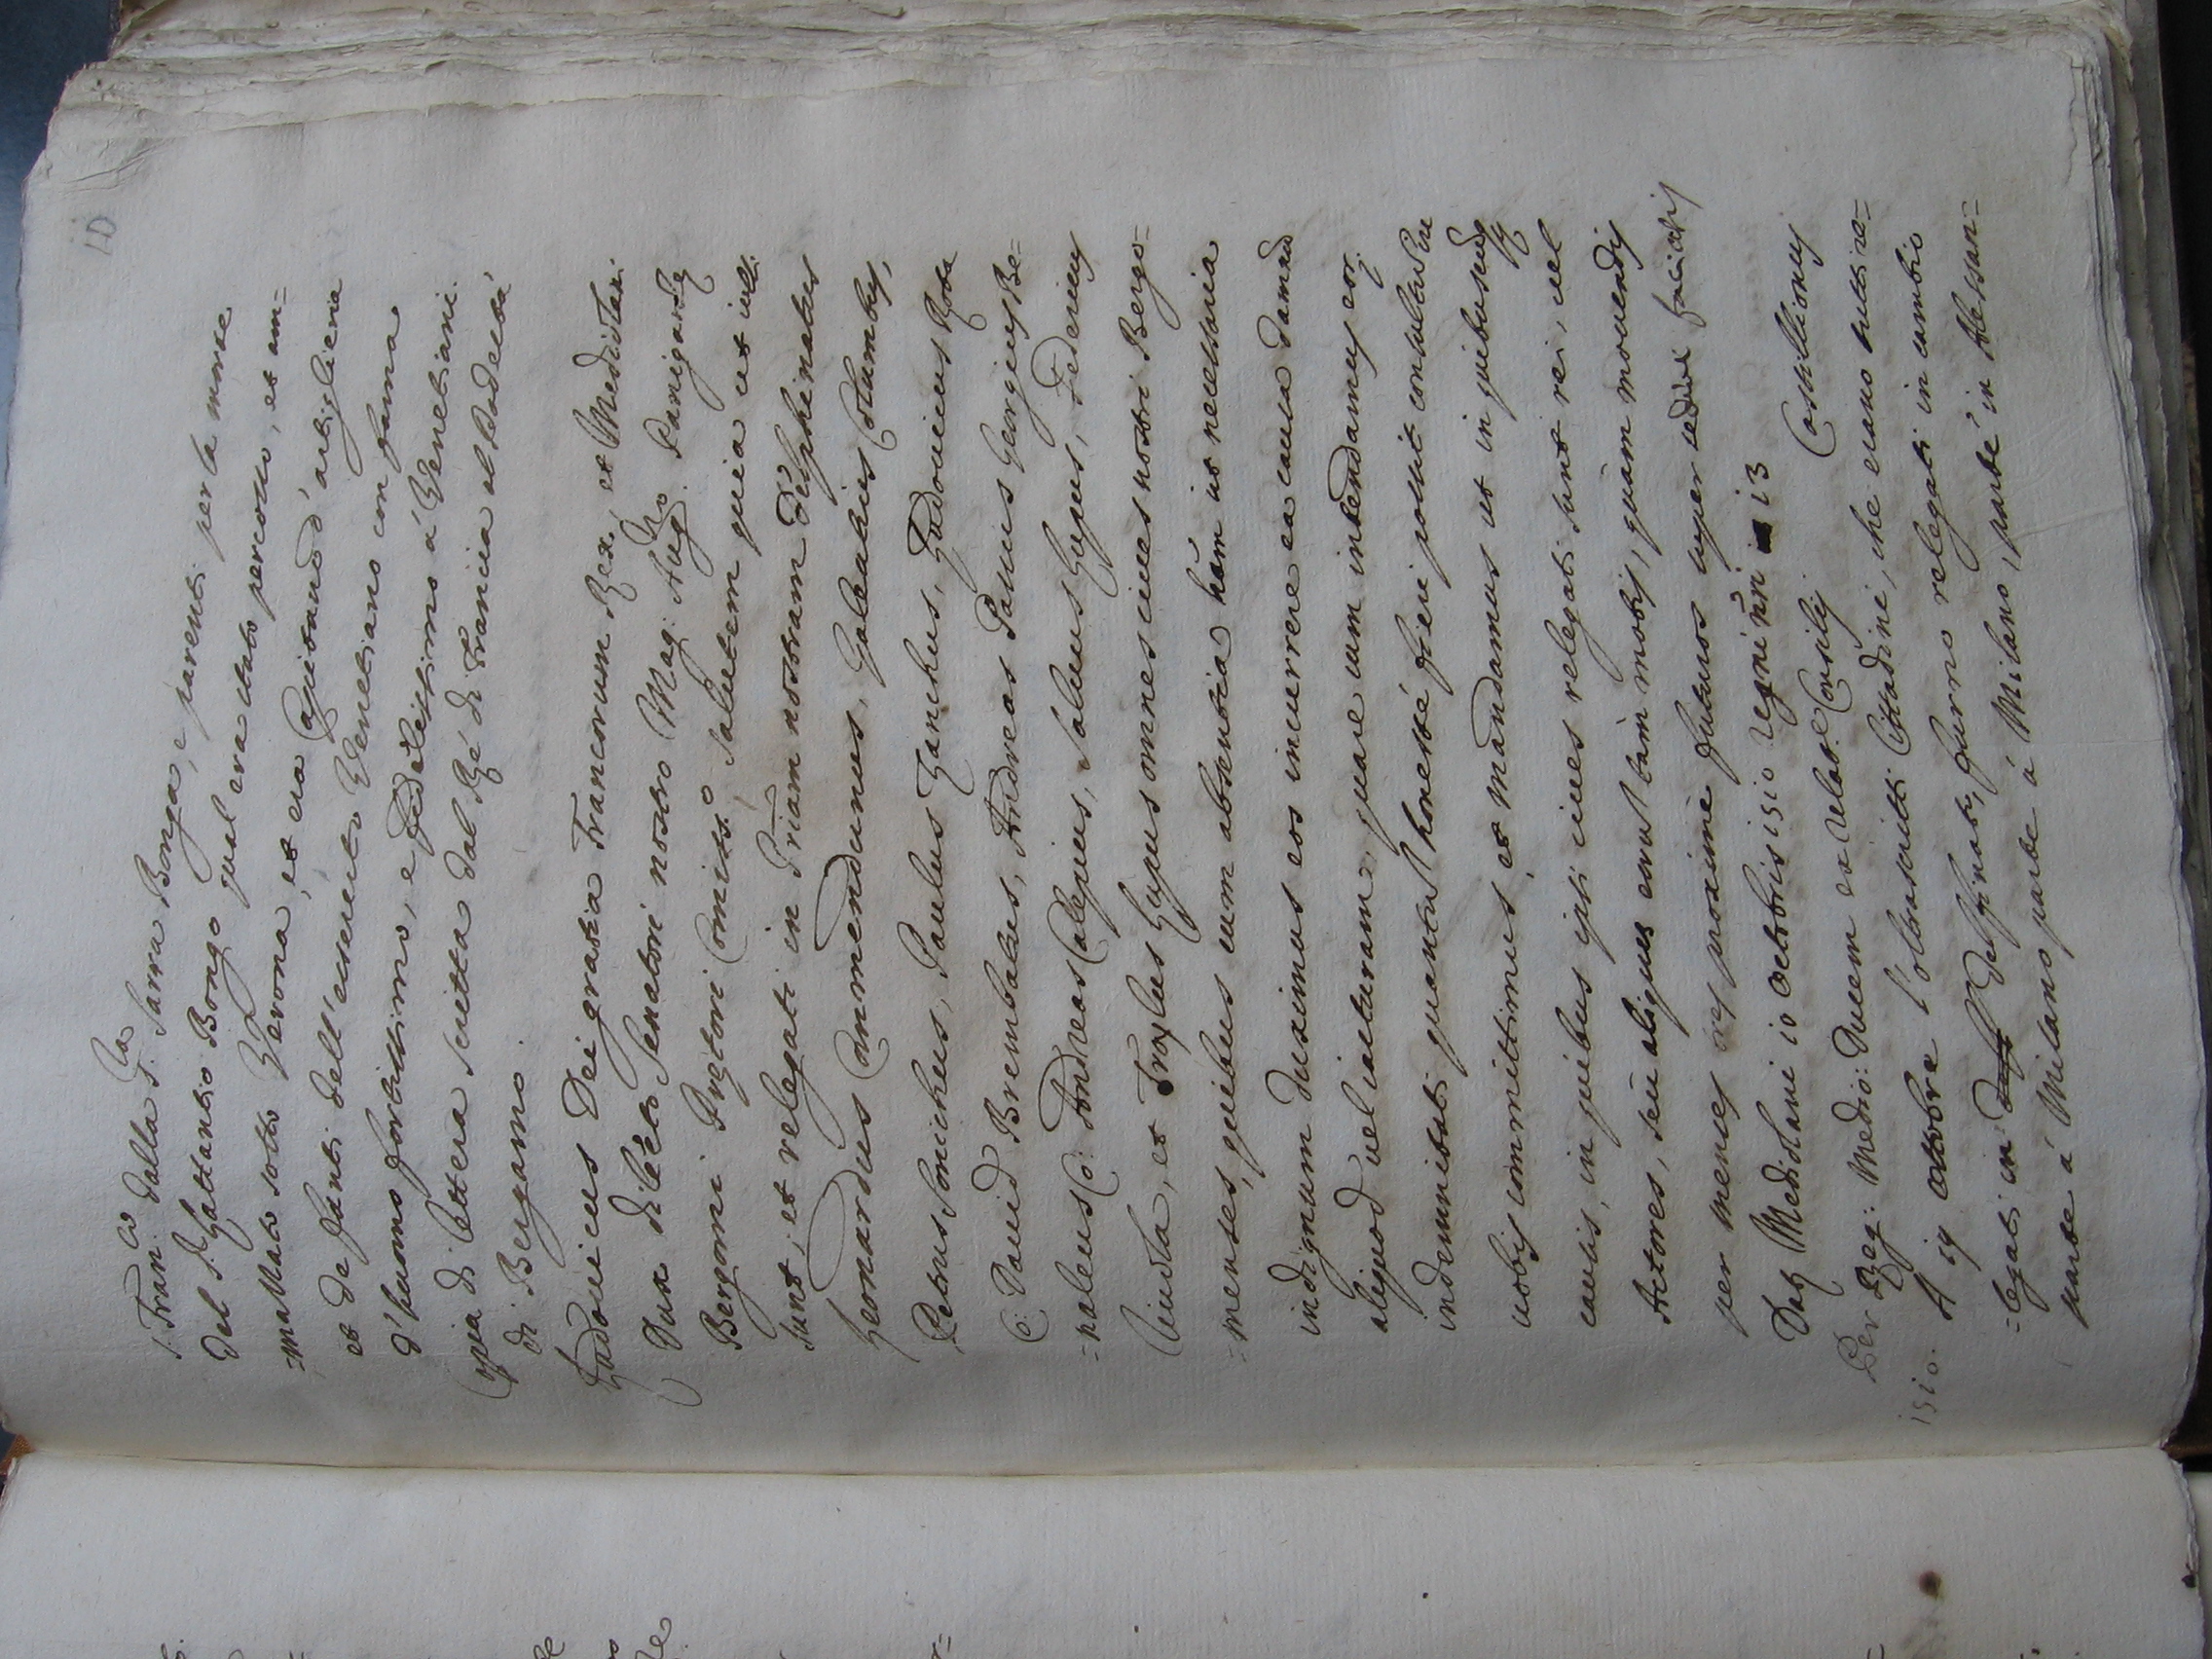 10
S. Fran.co dalla S.ra Sarra Bonga, e parenti per la morte
del S. Gattanio Bongo qual era stato percosso, et am=
=mallato sotto Verona, et era Capitanio d'artiglieria
et de fanti dell'essercito Venetiano con fama
d'huomo fortissimo, e fedelissimo à Venetiani.
Copia di lettera scritta dal Rè di Francia al Podestà
di Bergamo.
Ludovicus Dei gratia Francorum Rex, et Mediolani
Dux dilecto Senatori nostro Mag.co Aug.no Panigarolę
Bergomi Pretori Comiss.o salutem quia cit.
sunt, et relegati in Priam nostram Delphinatus
Leonardus Commendunus, Galeatius Columbus,
Petrus Sonichus, Paulus Zanchus, Ludovicus Rota
C: David Brembatus, Andreas Passus Georgius Be=
=naleus Co: Andreas Calepius, Salvus Lupus, Federicus
Viulta, et Troylus Lupus omnes cives nostri Bergo=
=menses, quibus cum absentia hæc iis necessaria
indignum duximus eos incurrere ea causa damnū
aliquod vel iacturam, quare cum intendamus eor.
indemnitati quantū honestè fieri possit consultū eē
vobis committimus, et mandamus ut in quibuscūq
causis, in quibus ipsi cives relegati sunt rei, vel
Actores, seu aliques erunt tàm motis, quàm movendis
per menses tres proximè futuros super sederi faciatis
Dat. Mediolani 10 octobris 1510 regni nri 13
Per Reg: Medio: Ducem ex relat.e Consilij Castillioneus
1510. A 19 ottobre l'oltrascritti Cittadini, che erano statti re=
=legati in Delfinati, furno relegati in cambio
parte à Milano parte à Milano, parte in Alessan=